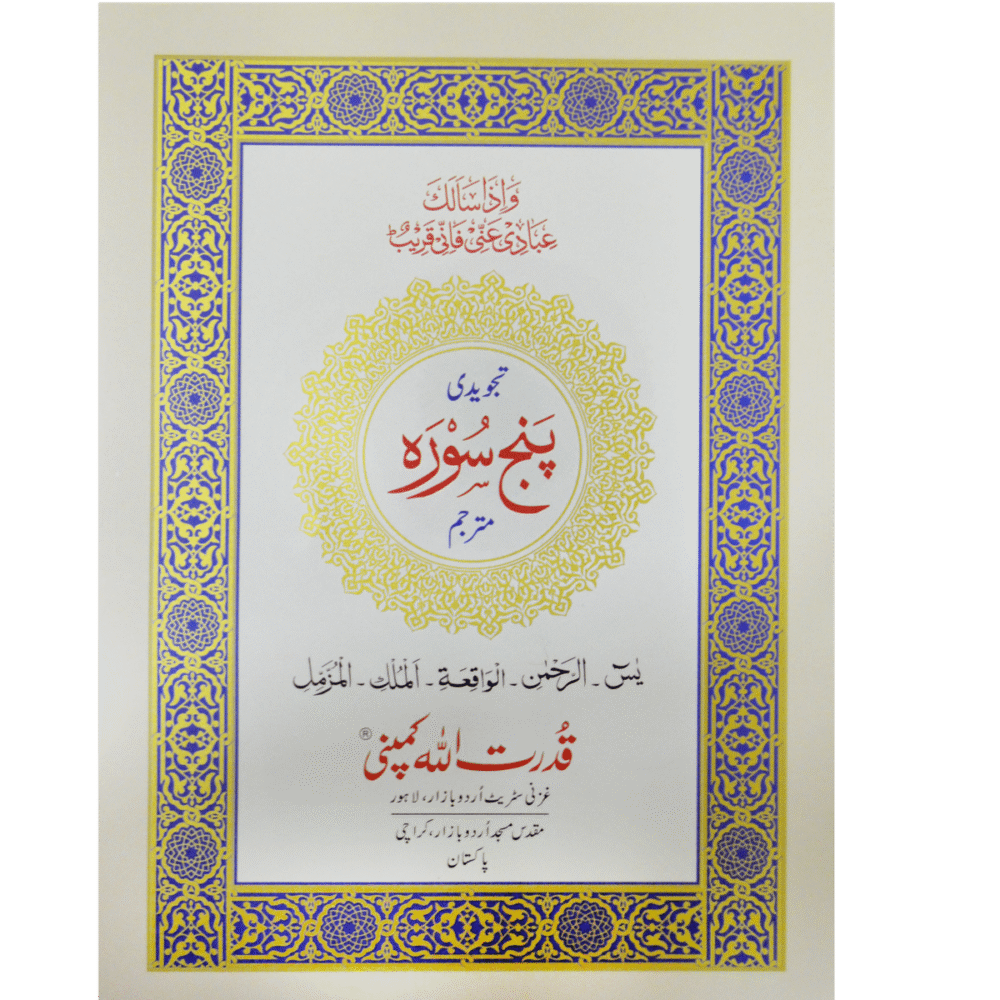 وَاِذَا سَاَلَكَ
عِبَادِیْ عَنِّیْ فَاِنِّیْ قَرِیْبٌ ؕ
تجویدی
پَنج سُوْرَہ
مترجم
یٰسٓ ۔ الرَحْمٰن ۔ الْوَاقِعَة ۔ اَلْمُلْك ۔ الْمُزَّمِّل
قُدرت اللہ کمپنی ®
غزنی سٹریٹ اُردو بازار، لاہور
مقدس مسجد اُردو بازار، کراچی
پاکستان